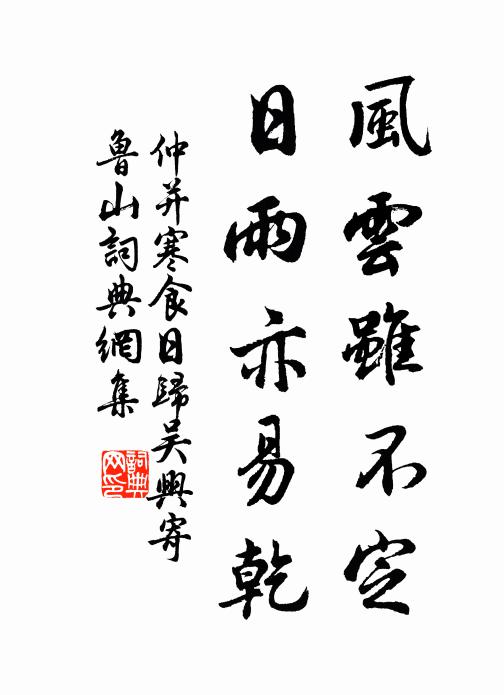 風雲雖不定
日雨亦易乾
仲并寒食日歸吴興寄
魯山詞典網集
詞典
网印